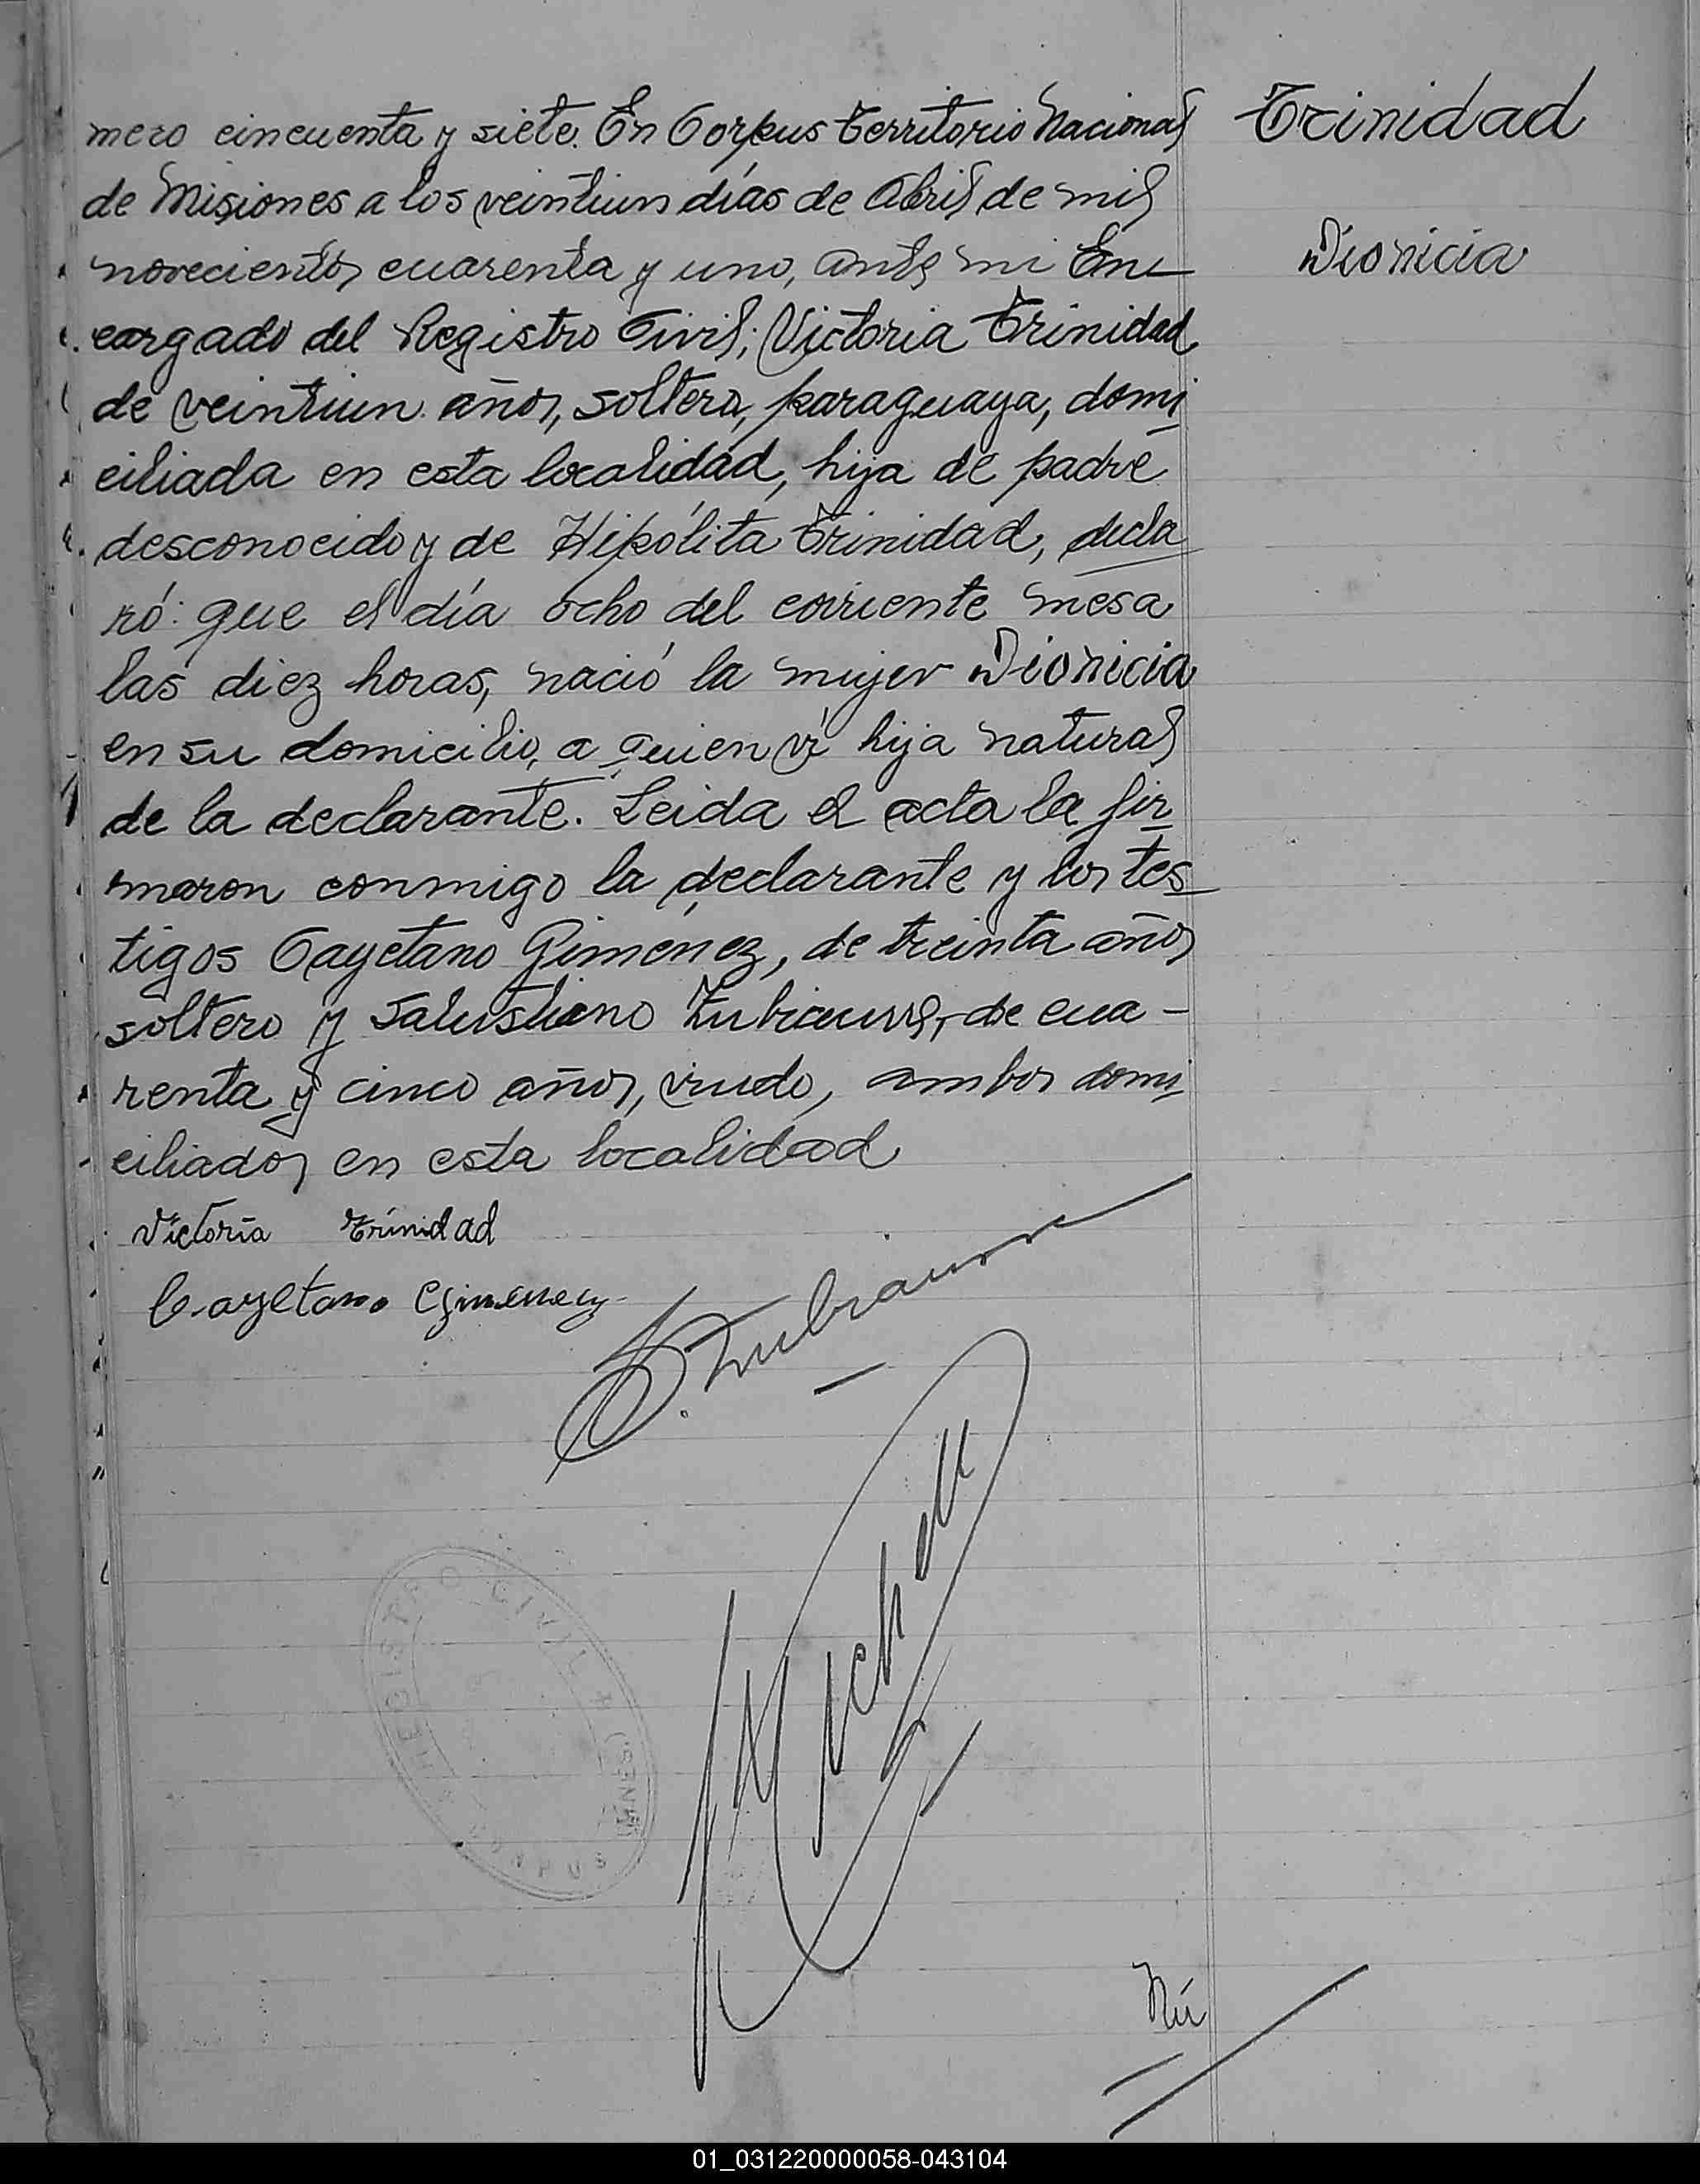 mero cincuenta y siete. En Corpus Territorio Nacional
Trinidad
de Misiones a los veintiun días de Abril de mil
novecientos cuarenta y uno, ante mi En-
Dionicia
cargado del Registro Civil; Victoria Trinidad
de veintiun años, soltera, paraguaya, domi
ciliada en esta localidad, hija de padre
desconocido y de Hipólita Trinidad, decla
ró: que el día ocho del corriente mes a
las diez horas, nació la mujer Dionicia
en su domicilio, a quien ví hija natural
de la declarante. Leida el acta la fir
maron conmigo la declarante y los tes
tigos Cayetano Gimenez, de treinta años
soltero y Salustiano Zubiaurre, de cua-
renta y cinco años, viudo, ambos domi
ciliados en esta localidad
Victoria Trinidad
Cayetano Gimenez
S. Zubiaurre
REGISTRO CIVIL
CORPUS
Nú
01_031220000058-043104